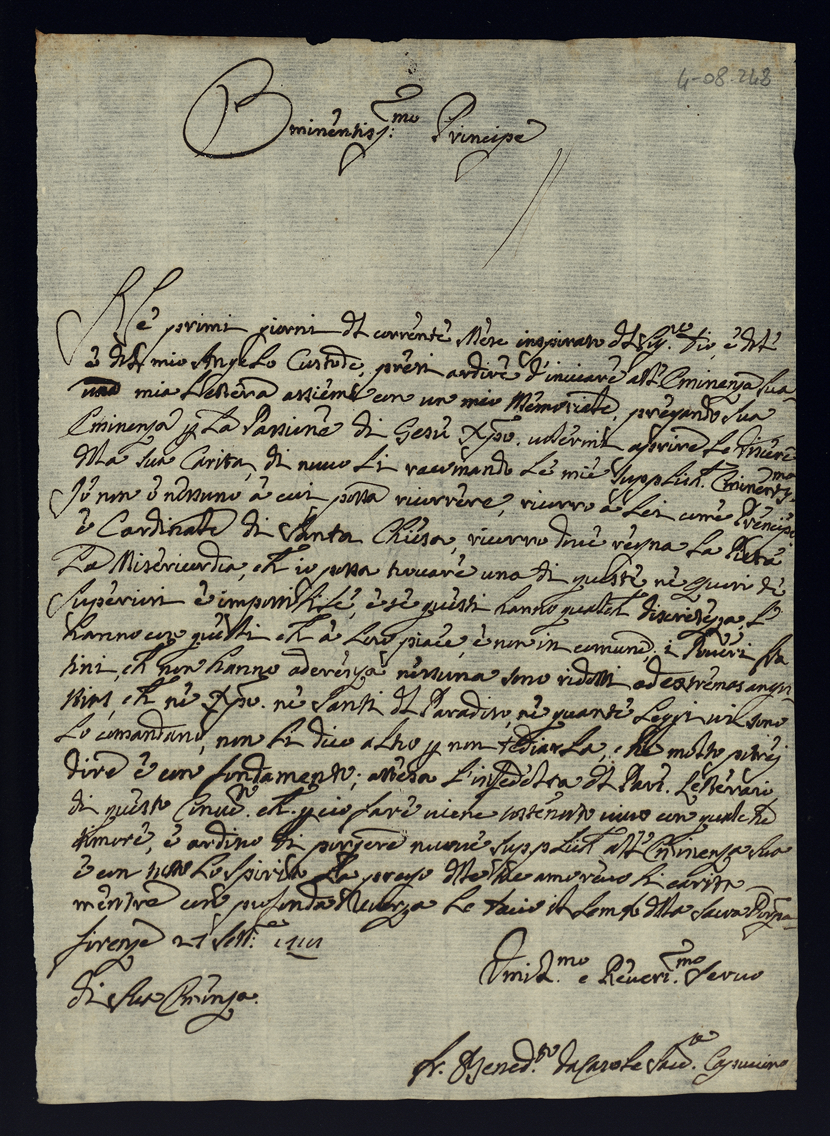 4-08.248
Eminentiss.mo Principe
Ne primi giorni del corrente Mese inspirato dal Sig.re Dio, e dal
e dal mio Angelo Custode, presi ardire d'inviare all'Eminenza sua
una mia Lettera assieme con un meo Memoriale, pregando sua
Eminenza p La Passione di Gesù Xpo. volermi aprire le viscere
della sua Carità, di nuovo li racomando le mie supplich. Eminentiss.mo
Io non ò nessuno à cui possa ricorrere, ricorro à Lei come Principe
è Cardinale di Santa Chiesa, ricorro dove regna La Pietà
La Misericordia, ch io possa trovare una di queste ne Quori de
Superiori è impossibile, è se questi hanno qualch discretezza, L'
hanno con quelli ch à Loro piace, è non in comune. i Poveri fra
tini, ch non hanno aderenza nessuna sono ridotti ad extremas angu
stias, ch ne Xpo. ne Santi del Paradiso, ne quante Leggi vi sono
Lo comandano, non li dico altro p non tediarLa, che molto potrej
dire è con fondamento; attesa L'infedeltà del Pad. Letterario
di questo Conve.to ch. p ciò fare viene sostenuto vivo con qualche
timore, è ardisco di porgere nuove supplich all'Eminenza Sua
è con tutto Lo spirito La prego delle sue amorevoli carità
mentre con profonda Riverza Le bacio il Lembo della Sacra Porpora
firenze 21 Sett.e
di Sua Eminza.
Umil.mo e Reveri.mo Servo
fr. Bened.tto da Capucino